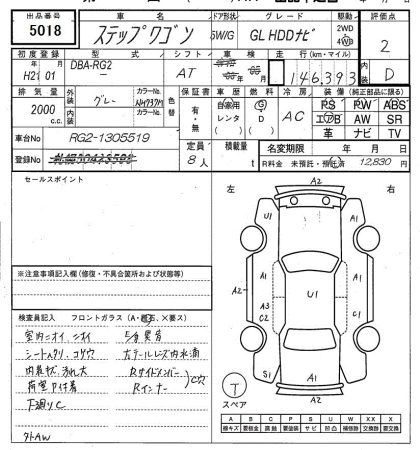 出品番号 車名 ドア形状 グレード 駆動 評価点
5018 ステップワゴン 5W/G GL HDDナビ 2WD 4WD 2
初度登録 型式 シフト 車検 走行(km・マイル) 内装
H21 01 DBA-RG2 AT 146,393 D
排気量 外装 カラーNo. 色替 保証書 車歴 燃料 冷房 装備(純正部品に限る)
2000 c.c. グレー NH737M 有・無 自家用 レンタ G D AC PS PW ABS
内装 カラーNo. エアB AW SR
革 ナビ TV
車台No RG2-1305519 定員 積載量 名変期限 年 月 日
登録No 8人 t R料金 未預託・預託済 12,830 円
セールスポイント
左 右
A2
U1 A1
A2 A1 A1
A3 U1
C2 C2
S1 A1 A1
A2
スペア
※注意事項記入欄(修復・不具合箇所および状態等)
検査員記入 フロントガラス(A・飛石、×要ス)
室内ニオイ
シートスリ、コゲ穴 右テールレンズ内水滴
内装キズ、汚れ大 Rサイドメンバー
荷室P付着 Rインナー C穴
下廻りC
外AW
A B C P S U W X XX
線キズ 要板金 腐蝕 要塗装 サビ 凹凸 補修跡 要交換 交換済